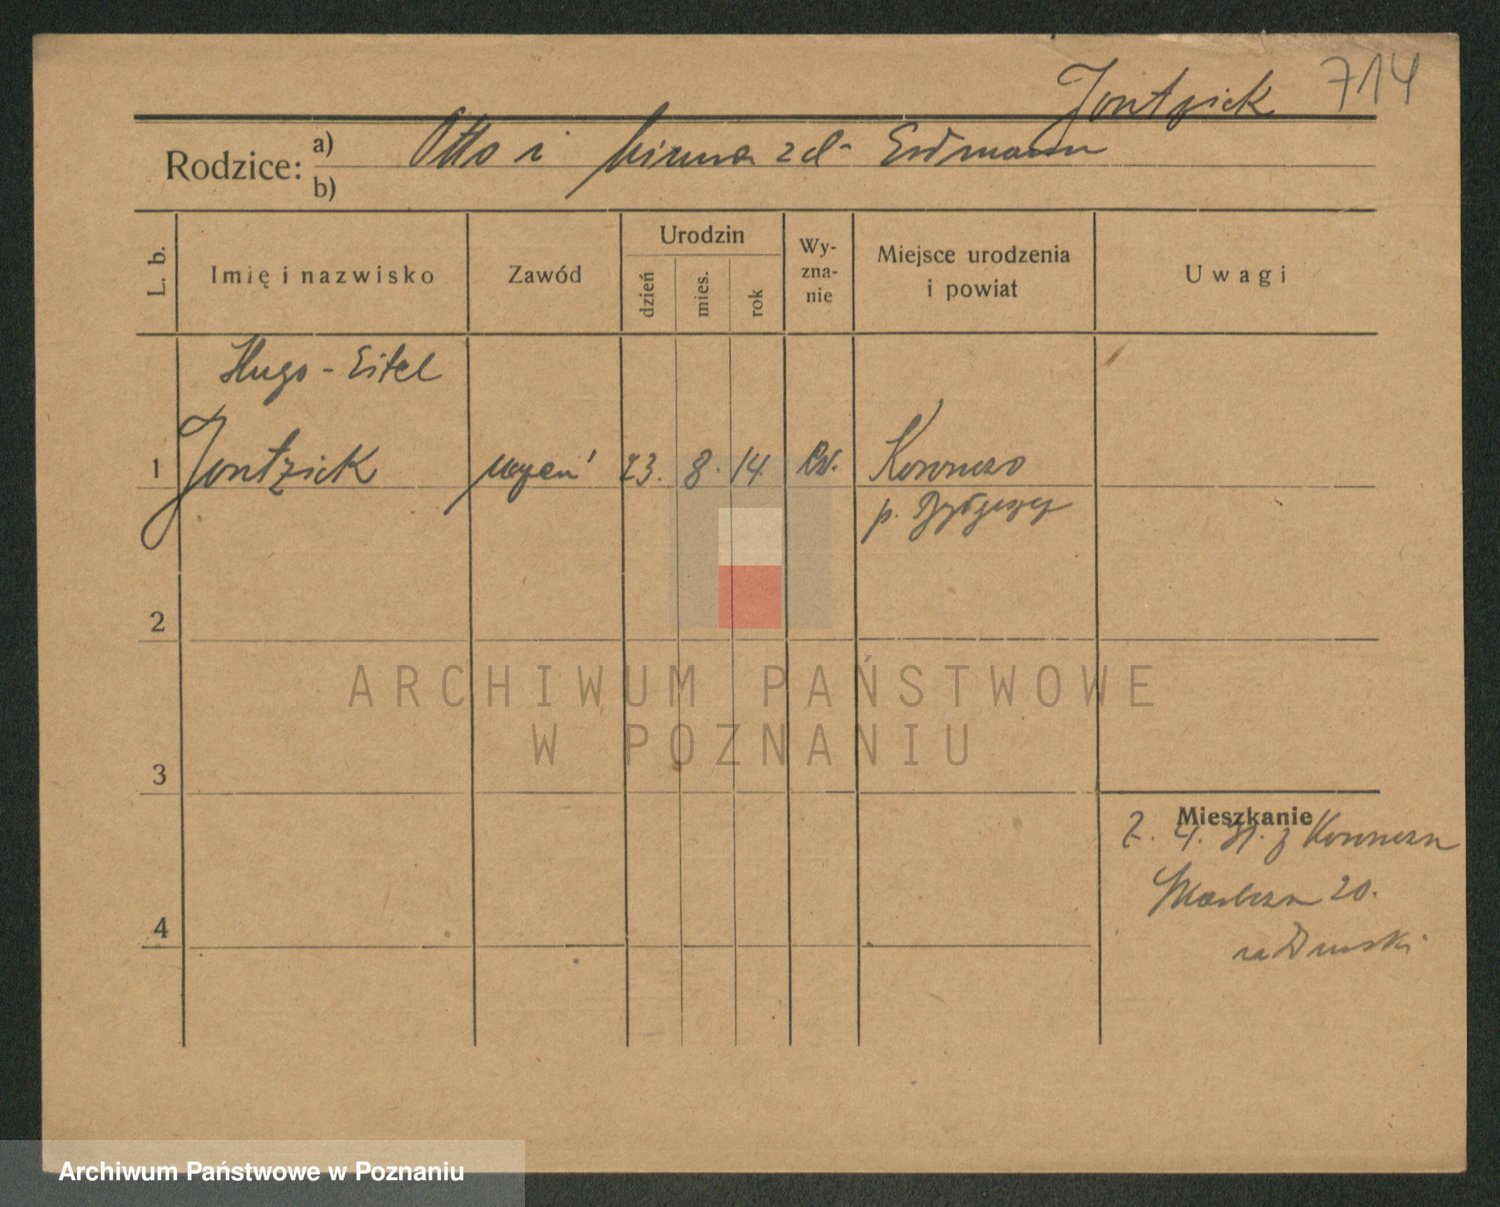 Jontzick 714
Rodzice: a) Otto i zd. Erdmann
b)
L. b.
Imię i nazwisko
Zawód
Urodzin
dzień
mies.
rok
Wy-
zna-
nie
Miejsce urodzenia
i powiat
Uwagi
Hugo-Eitel
1 Jontzick uczeń 23. 8. 14. ew. Koronowo
p. Bydgoszcz
2
3
4
Mieszkanie
z Koronowa
20.
ARCHIWUM PAŃSTWOWE
W POZNANIU
Archiwum Państwowe w Poznaniu